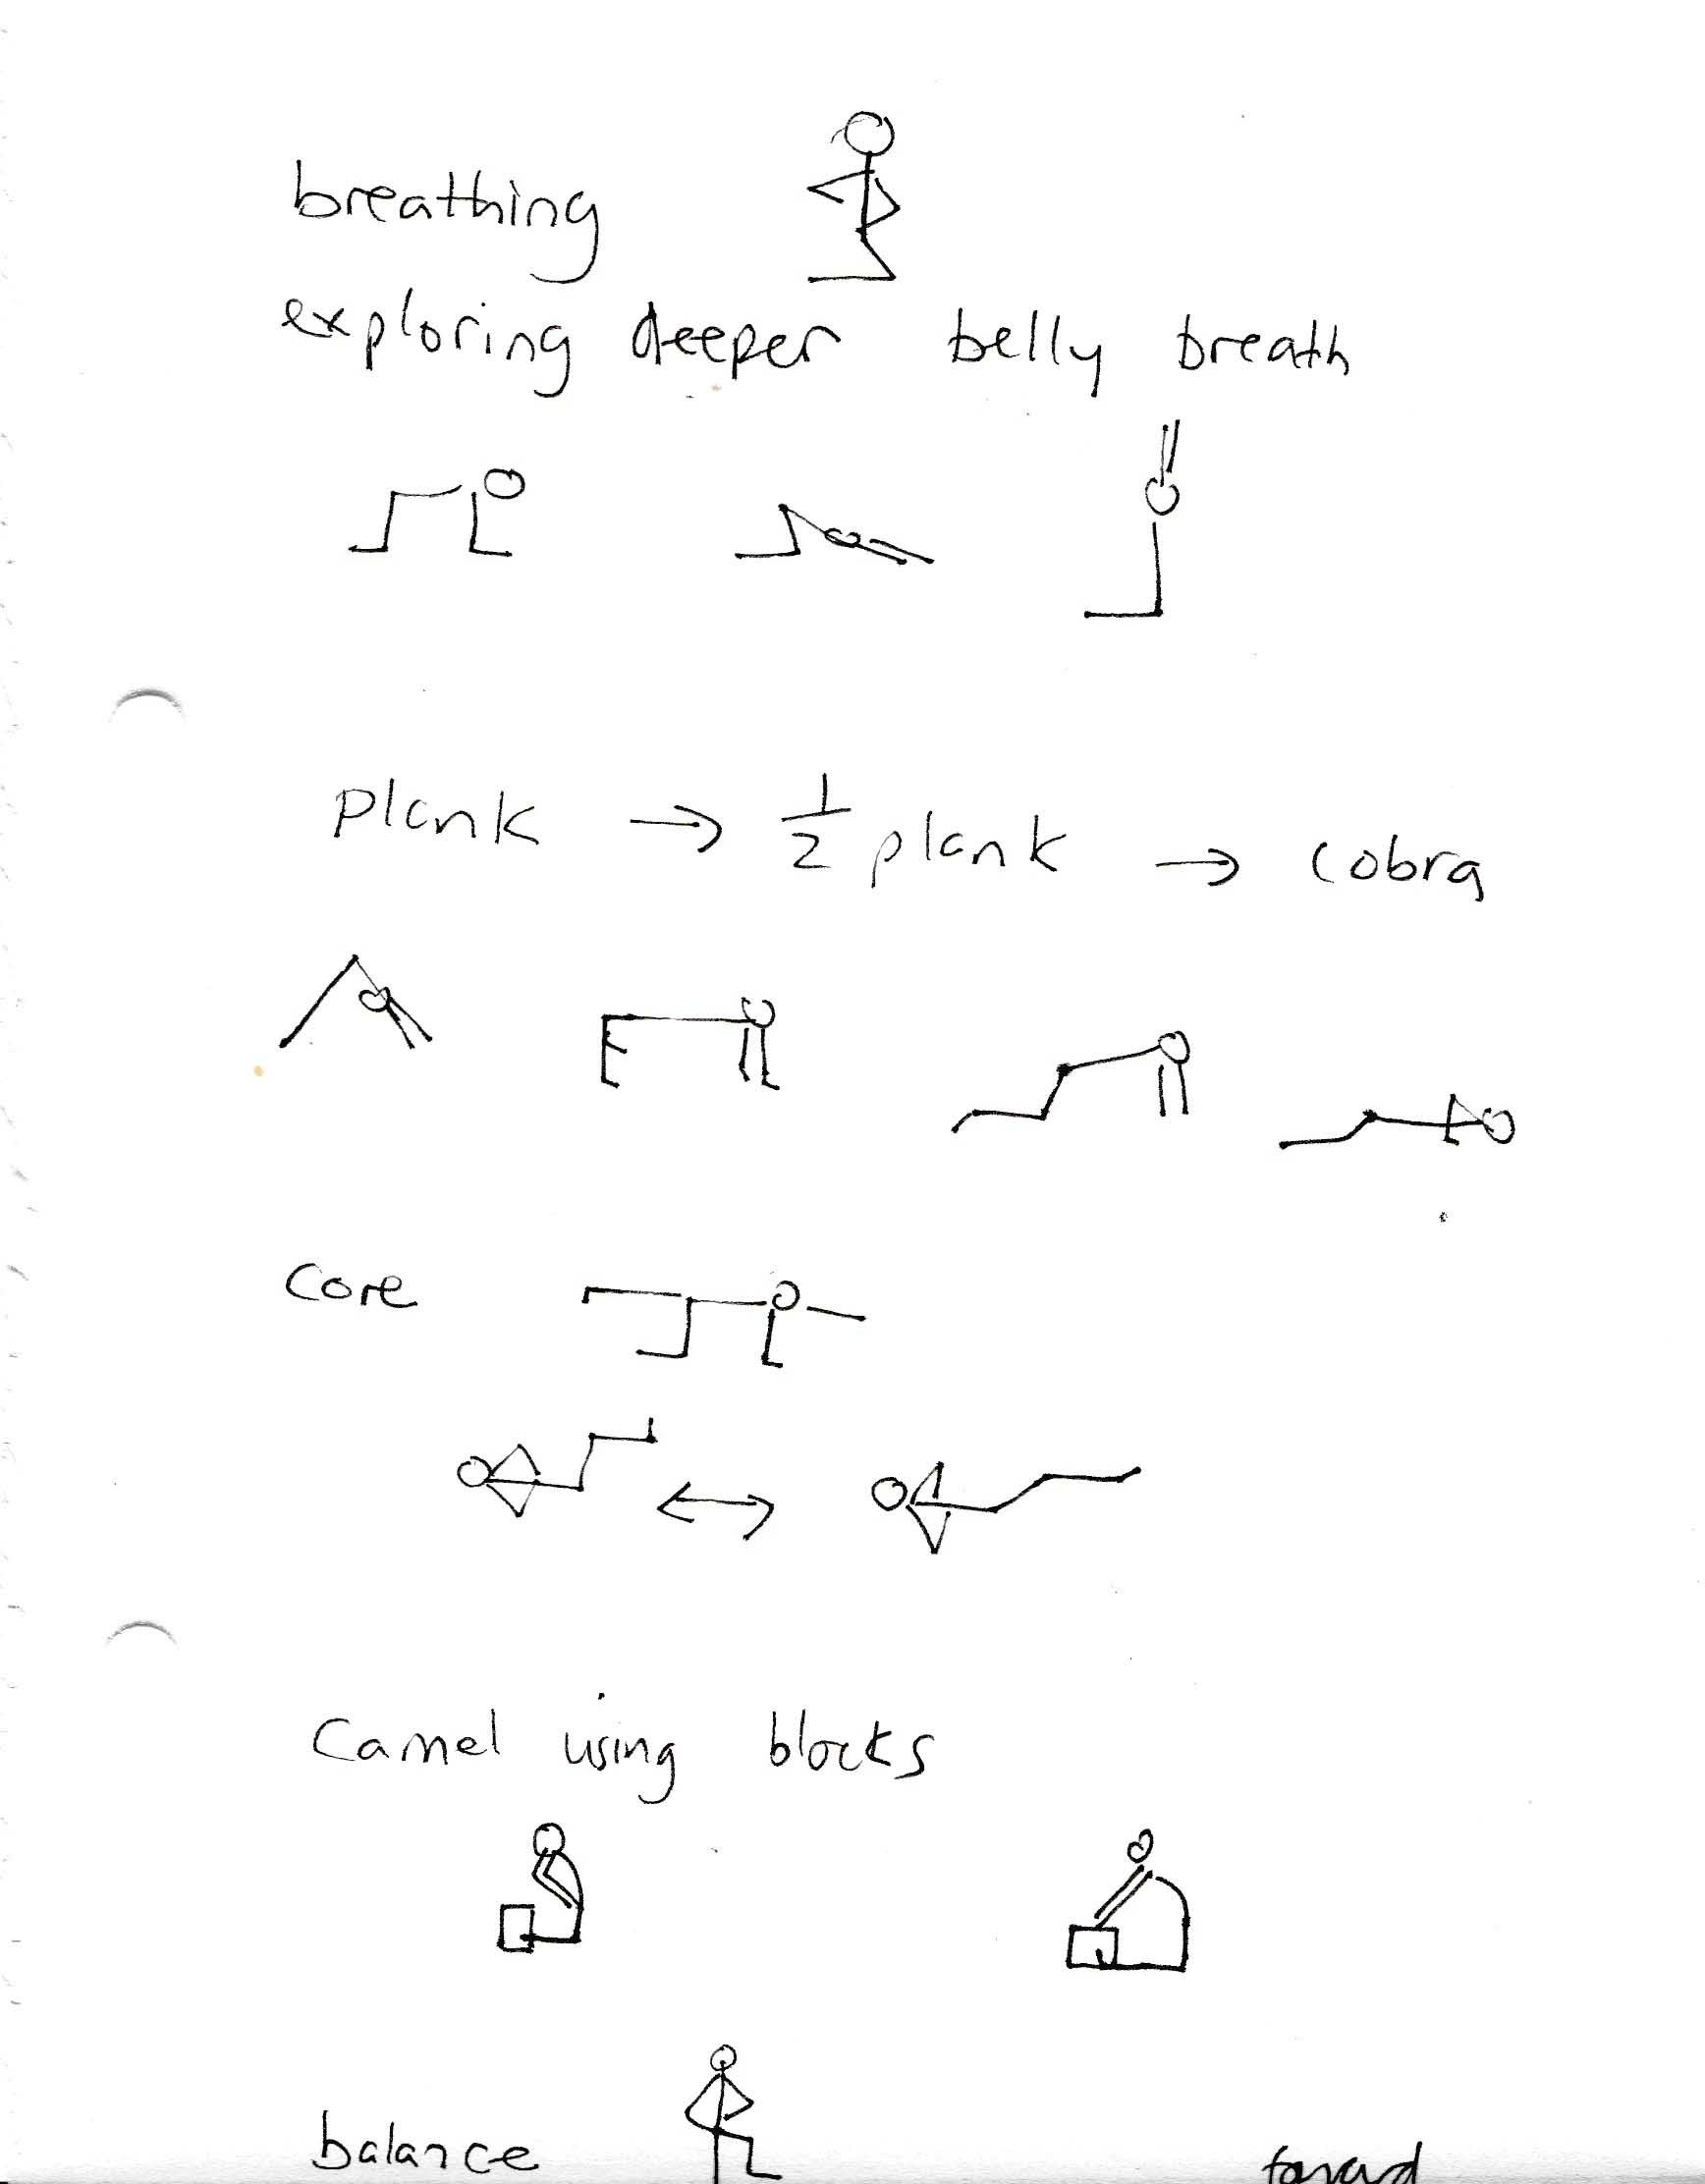 breathing
exploring deeper belly breath
plank → 1/2 plank → cobra
core
↔
Camel using blocks
balance